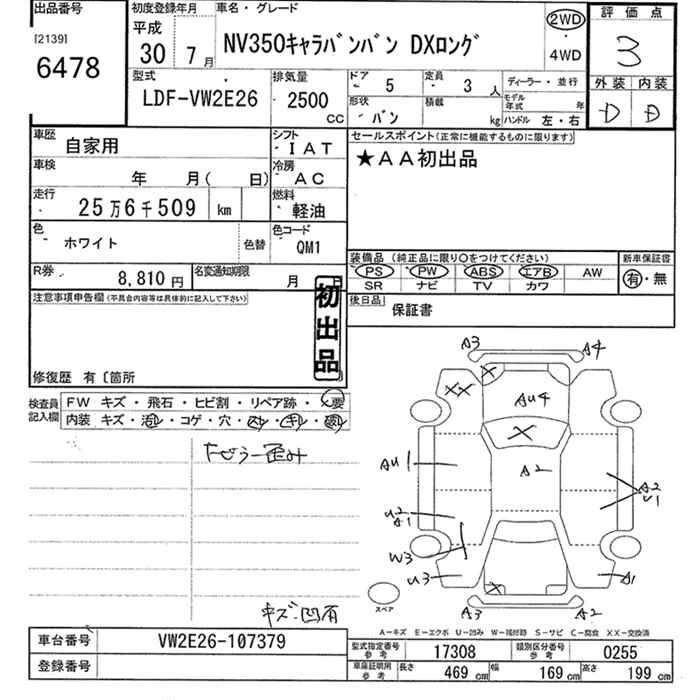 出品番号
[2139]
6478
初度登録年月
平成
30年 7月
車名・グレード
NV350キャラバンバン DXロング
2WD
4WD
評価点
3
外装 内装
D D
型式
LDF-VW2E26
排気量
2500
CC
ドア
5
定員
3 人
形状
バン
積載
kg
ディーラー・並行
モデル年式 年
ハンドル 左・右
車歴
自家用
シフト
IAT
車検
年 月( 日)
冷房
AC
走行
25万6千509 km
燃料
軽油
色
ホワイト
色替
色コード
QM1
R券
8,810円
名変通知期限
月 日
セールスポイント(正常に機能するものに限ります)
★AA初出品
装備品(純正品に限り○をつけてください)
PS PW ABS エアB AW
SR ナビ TV カワ
新車保証書
有・無
後日品
保証書
注意事項申告欄(不具合内容等は具体的に記入して下さい)
初出品
修復歴 有〔箇所
検査員記入欄
FW キズ・飛石・ヒビ割・リペア跡・要
内装 キズ・汚レ・コゲ・穴・
キズ凹有
A3 A4
XX
X
AU4
X
A2
AU1
A2
U1
U2
A1
W3
U3
X
A1
A3 A2
スペア
A-キズ E-エクボ U-凹み W-補修跡 S-サビ C-腐食 XX-交換済
車台番号
VW2E26-107379
登録番号
型式指定番号 参考
17308
類別区分番号 参考
0255
車庫証明用 参考
長さ 469cm 幅 169cm 高さ 199cm